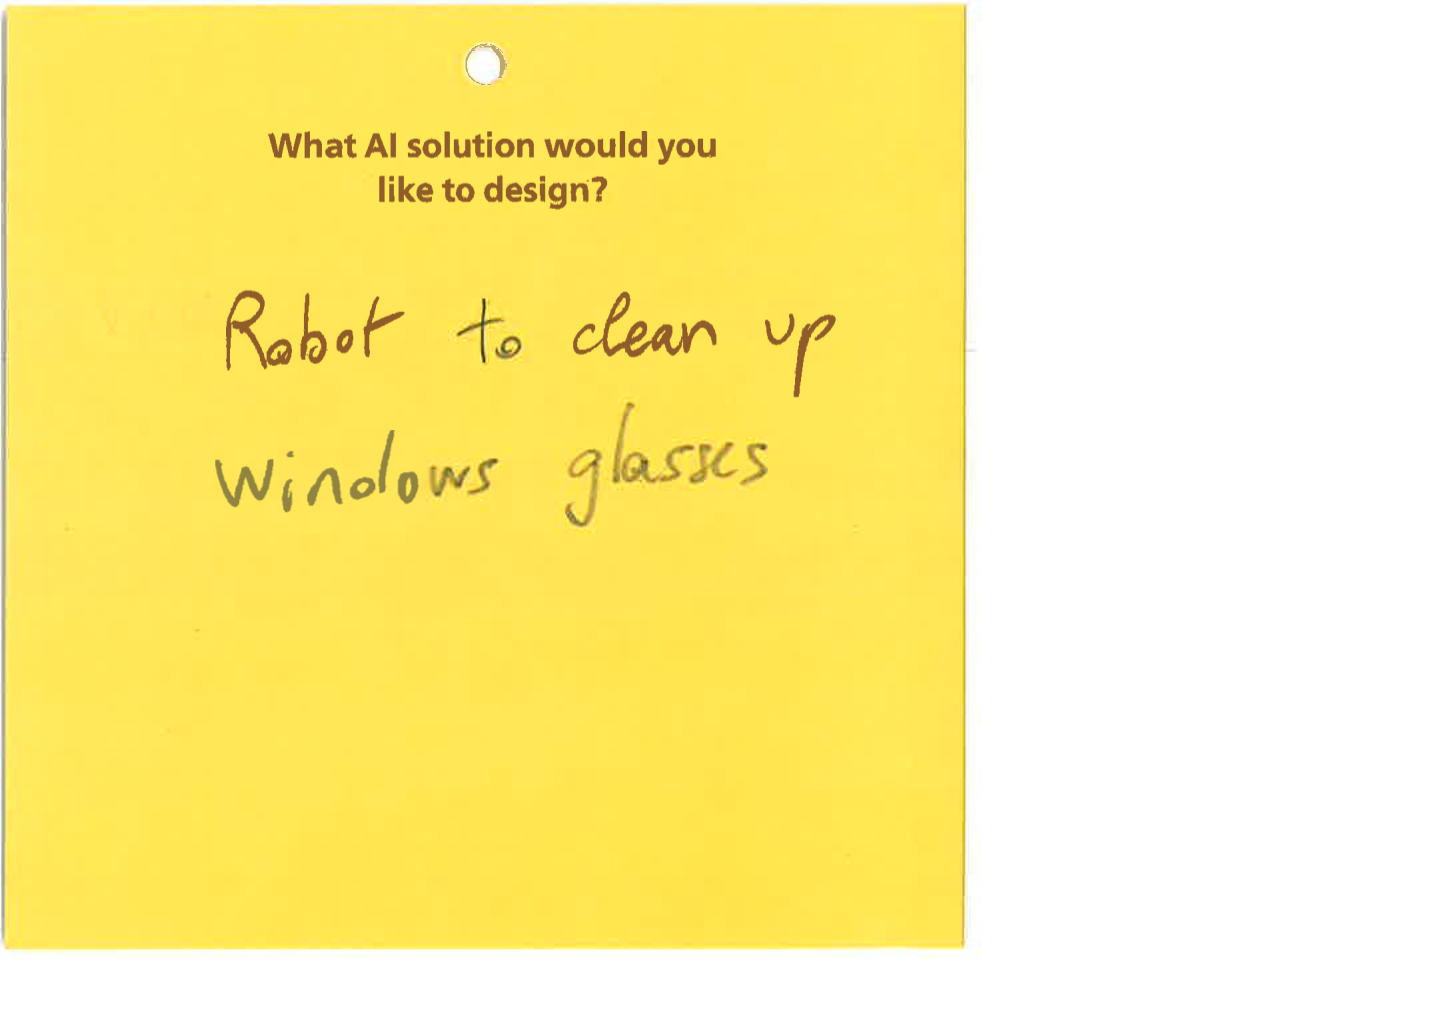 What AI solution would you
like to design?
Robot to clean up
windows glasses